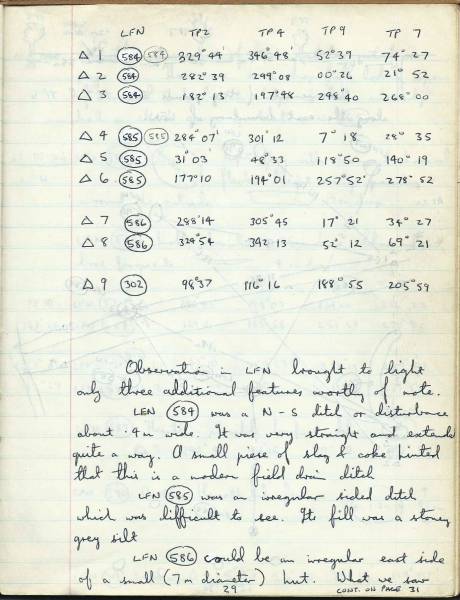 LFN TP2 TP4 TP9 TP 7
△ 1 584 584 329°44' 346°48' 52°39 74° 27
△ 2 584 282°39 299°08 00°26 21° 52
△ 3 584 182°13 197°48 248°40 268°00
△ 4 585 585 284°07' 301°12 7°18 28° 35
△ 5 585 31°03' 48°33 118°50 140°19
△ 6 585 177°10 194°01 257°52' 278°52
△ 7 586 288°14 305°45 17°21 34°27
△ 8 586 324°54 342 13 52°12 69°21
△ 9 302 98°37 116°16 188°55 205°59
Observation in LFN brought to light
only three additional features worthy of note.
LFN 584 was a N-S ditch or disturbance
about .4m wide. It was very straight and extends
quite a way. A small piese of slag & coke hinted
that this is a modern field drain ditch
LFN 585 was an irregular sided ditch
which was difficult to see. Its fill was a stoney
grey silt
LFN 586 could be an irregular east side
of a small (7m diameter) hut. What we saw
29 CONT. ON PAGE 31